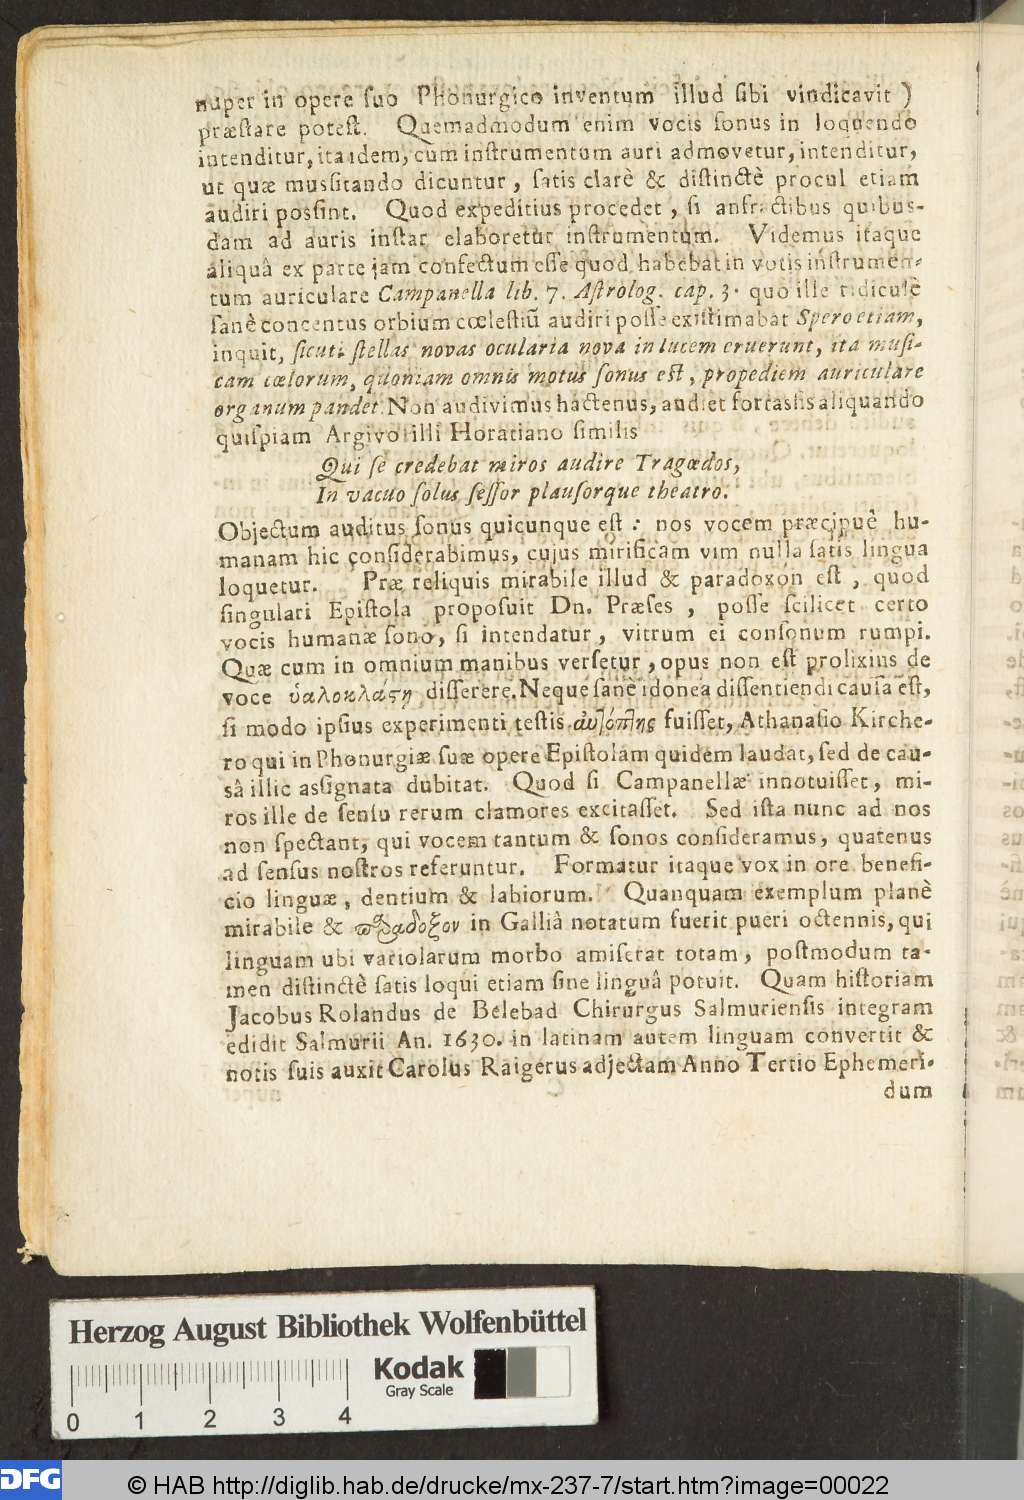 nuper in opere ſuo Phonurgico inventum illud ſibi vindicavit )
præſtare poteſt. Quemadmodum enim vocis ſonus in loquendo
intenditur, ita idem, cum inſtrumentum auri admovetur, intenditur,
ut quæ muſſitando dicuntur, ſatis clarè & diſtinctè procul etiam
audiri poſſint. Quod expeditius procedet, ſi anfractibus quibus-
dam ad auris inſtar elaboretur inſtrumentum. Videmus itaque
aliquâ ex parte jam confectum eſſe quod habebat in votis inſtrumen-
tum auriculare Campanella lib. 7. Aſtrolog. cap. 3. quo ille ridiculè
ſanè concentus orbium cœleſtiũ audiri poſſe exiſtimabat Spero etiam,
inquit, ſicuti ſtellas novas ocularia nova in lucem eruerunt, ita muſi-
cam cœlorum, quoniam omnis motus ſonus eſt, propediem auriculare
organum pandet. Non audivimus hactenus, audiet fortaſſis aliquando
quiſpiam Argivo illi Horatiano ſimilis
Qui ſe credebat miros audire Tragœdos,
In vacuo ſolus ſeſſor plauſorque theatro.
Objectum auditus ſonus quicunque eſt : nos vocem præcipuè hu-
manam hic conſiderabimus, cujus mirificam vim nulla ſatis lingua
loquetur. Præ reliquis mirabile illud & paradoxon eſt, quod
ſingulari Epiſtola propoſuit Dn. Præſes, poſſe ſcilicet certo
vocis humanæ ſono, ſi intendatur, vitrum ei conſonum rumpi.
Quæ cum in omnium manibus verſetur, opus non eſt prolixius de
voce ὑαλοκλάϛῃ diſſerere. Neque ſanè idonea diſſentiendi cauſa eſt,
ſi modo ipſius experimenti teſtis αὐτόπτης fuiſſet, Athanaſio Kirche-
ro qui in Phonurgiæ ſuæ opere Epiſtolam quidem laudat, ſed de cau-
sâ illic aſſignata dubitat. Quod ſi Campanellæ innotuiſſet, mi-
ros ille de ſenſu rerum clamores excitaſſet. Sed iſta nunc ad nos
non ſpectant, qui vocem tantum & ſonos conſideramus, quatenus
ad ſenſus noſtros referuntur. Formatur itaque vox in ore benefi-
cio linguæ, dentium & labiorum. Quanquam exemplum planè
mirabile & παράδοξον in Galliâ notatum fuerit pueri octennis, qui
linguam ubi variolarum morbo amiſerat totam, poſtmodum ta-
men diſtinctè ſatis loqui etiam ſine linguâ potuit. Quam hiſtoriam
Jacobus Rolandus de Belebad Chirurgus Salmurienſis integram
edidit Salmurii An. 1630. in latinam autem linguam convertit &
notis ſuis auxit Carolus Raigerus adjectam Anno Tertio Ephemeri-
dum
Herzog August Bibliothek Wolfenbüttel
Kodak
Gray Scale
0 1 2 3 4
DFG © HAB http://diglib.hab.de/drucke/mx-237-7/start.htm?image=00022